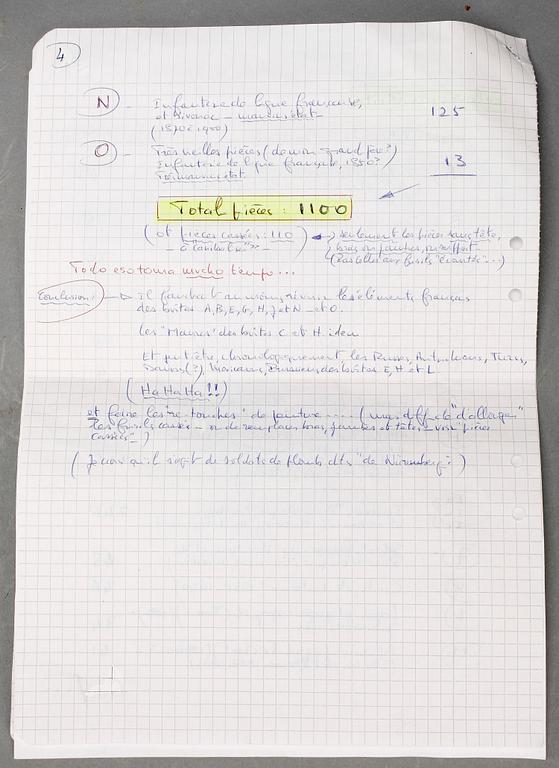 4
N - Infanterie de ligne française,
et Divenac - mauvais état - 125
(1870 à 1900)
O - Très vieilles pièces (de mon grand père?)
Infanterie de ligne française, 1850? 13
Très mauvais état
Total pièces : 1100
(et pièces cassées : 110
- à "cannibaliser" -)
seulement les pièces sans tête,
bras ou jambes,
(pas celles aux fusils "éreintés"...)
Todo eso toma mucho tempo...
Conclusion : il faudrait au moins, réunir les éléments français
des boîtes A, B, E, G, H, J et N et O.
Les "Maures" des boîtes C et H. idem
Et peut être, chronologiquement les Russes, Autrichiens, Turcs,
(?), Mexicains, Prussiens des boîtes E, H et L
(Ha Ha Ha!!)
et faire les "re-touches" de peinture.... (mais difficile "d'allonger"
les fusils cassés - ou de remplacer bras, jambes et têtes - voir "pièces
cassées" -)
(Je crois qu'il s'agit de soldats de plomb dits "de Nüremberg"?)